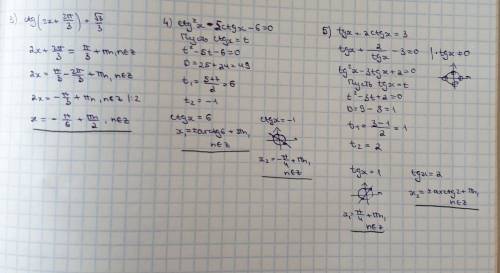 3) ctg(2x + 2π/3) = √3/3
2x + 2π/3 = π/3 + πn, n∈Z
2x = π/3 - 2π/3 + πn, n∈Z
2x = -π/3 + πn, n∈Z |:2
x = -π/6 + πn/2, n∈Z
4) ctg²x - 5ctgx - 6 = 0
Пусть ctgx = t
t² - 5t - 6 = 0
D = 25 + 24 = 49
t₁ = (5+7)/2 = 6
t₂ = -1
ctgx = 6
x₁ = arcctg6 + πn,
n∈Z
ctgx = -1
x₂ = -π/4 + πn,
n∈Z
5) tgx + 2ctgx = 3
tgx + 2/tgx - 3 = 0 | · tgx ≠ 0
tg²x - 3tgx + 2 = 0
Пусть tgx = t
t² - 3t + 2 = 0
D = 9 - 8 = 1
t₁ = (3-1)/2 = 1
t₂ = 2
tgx = 1
x₁ = π/4 + πn,
n∈Z
tgx = 2
x₂ = arctg2 + πn,
n∈Z